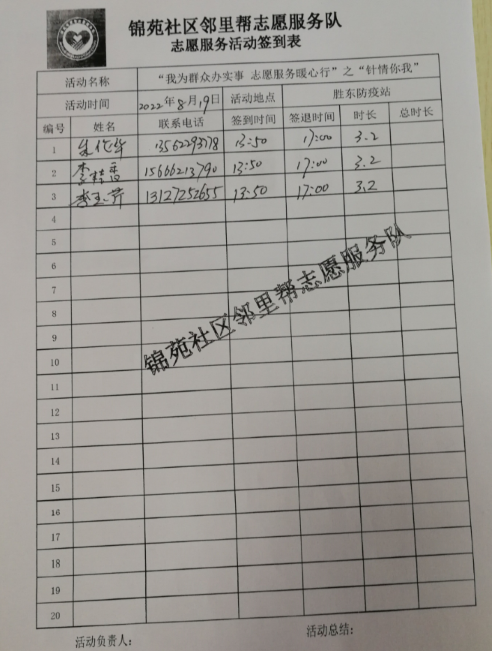 锦苑社区邻里帮志愿服务队
志愿服务活动签到表
活动名称 “我为群众办实事 志愿服务暖心行”之“针情你我”
活动时间 2022年8月19日 活动地点 胜东防疫站
编号 姓名 联系电话 签到时间 签退时间 时长 总时长
1 朱化华 13562293178 13:50 17:00 3.2
2 李桂香 15666213790 13:50 17:00 3.2
3 李玉芹 13127252655 13:50 17:00 3.2
4
5
6
7
8
9
10
11
12
13
14
15
16
17
18
19
20
锦苑社区邻里帮志愿服务队
活动负责人: 活动总结: